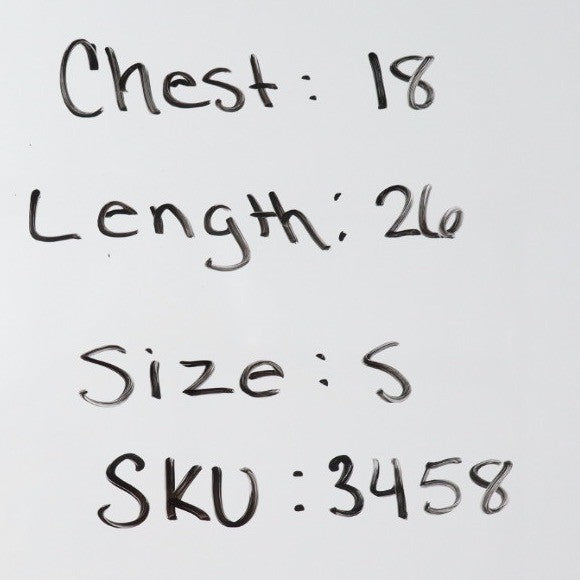 Chest: 18
Length: 26
Size: S
SKU: 3458